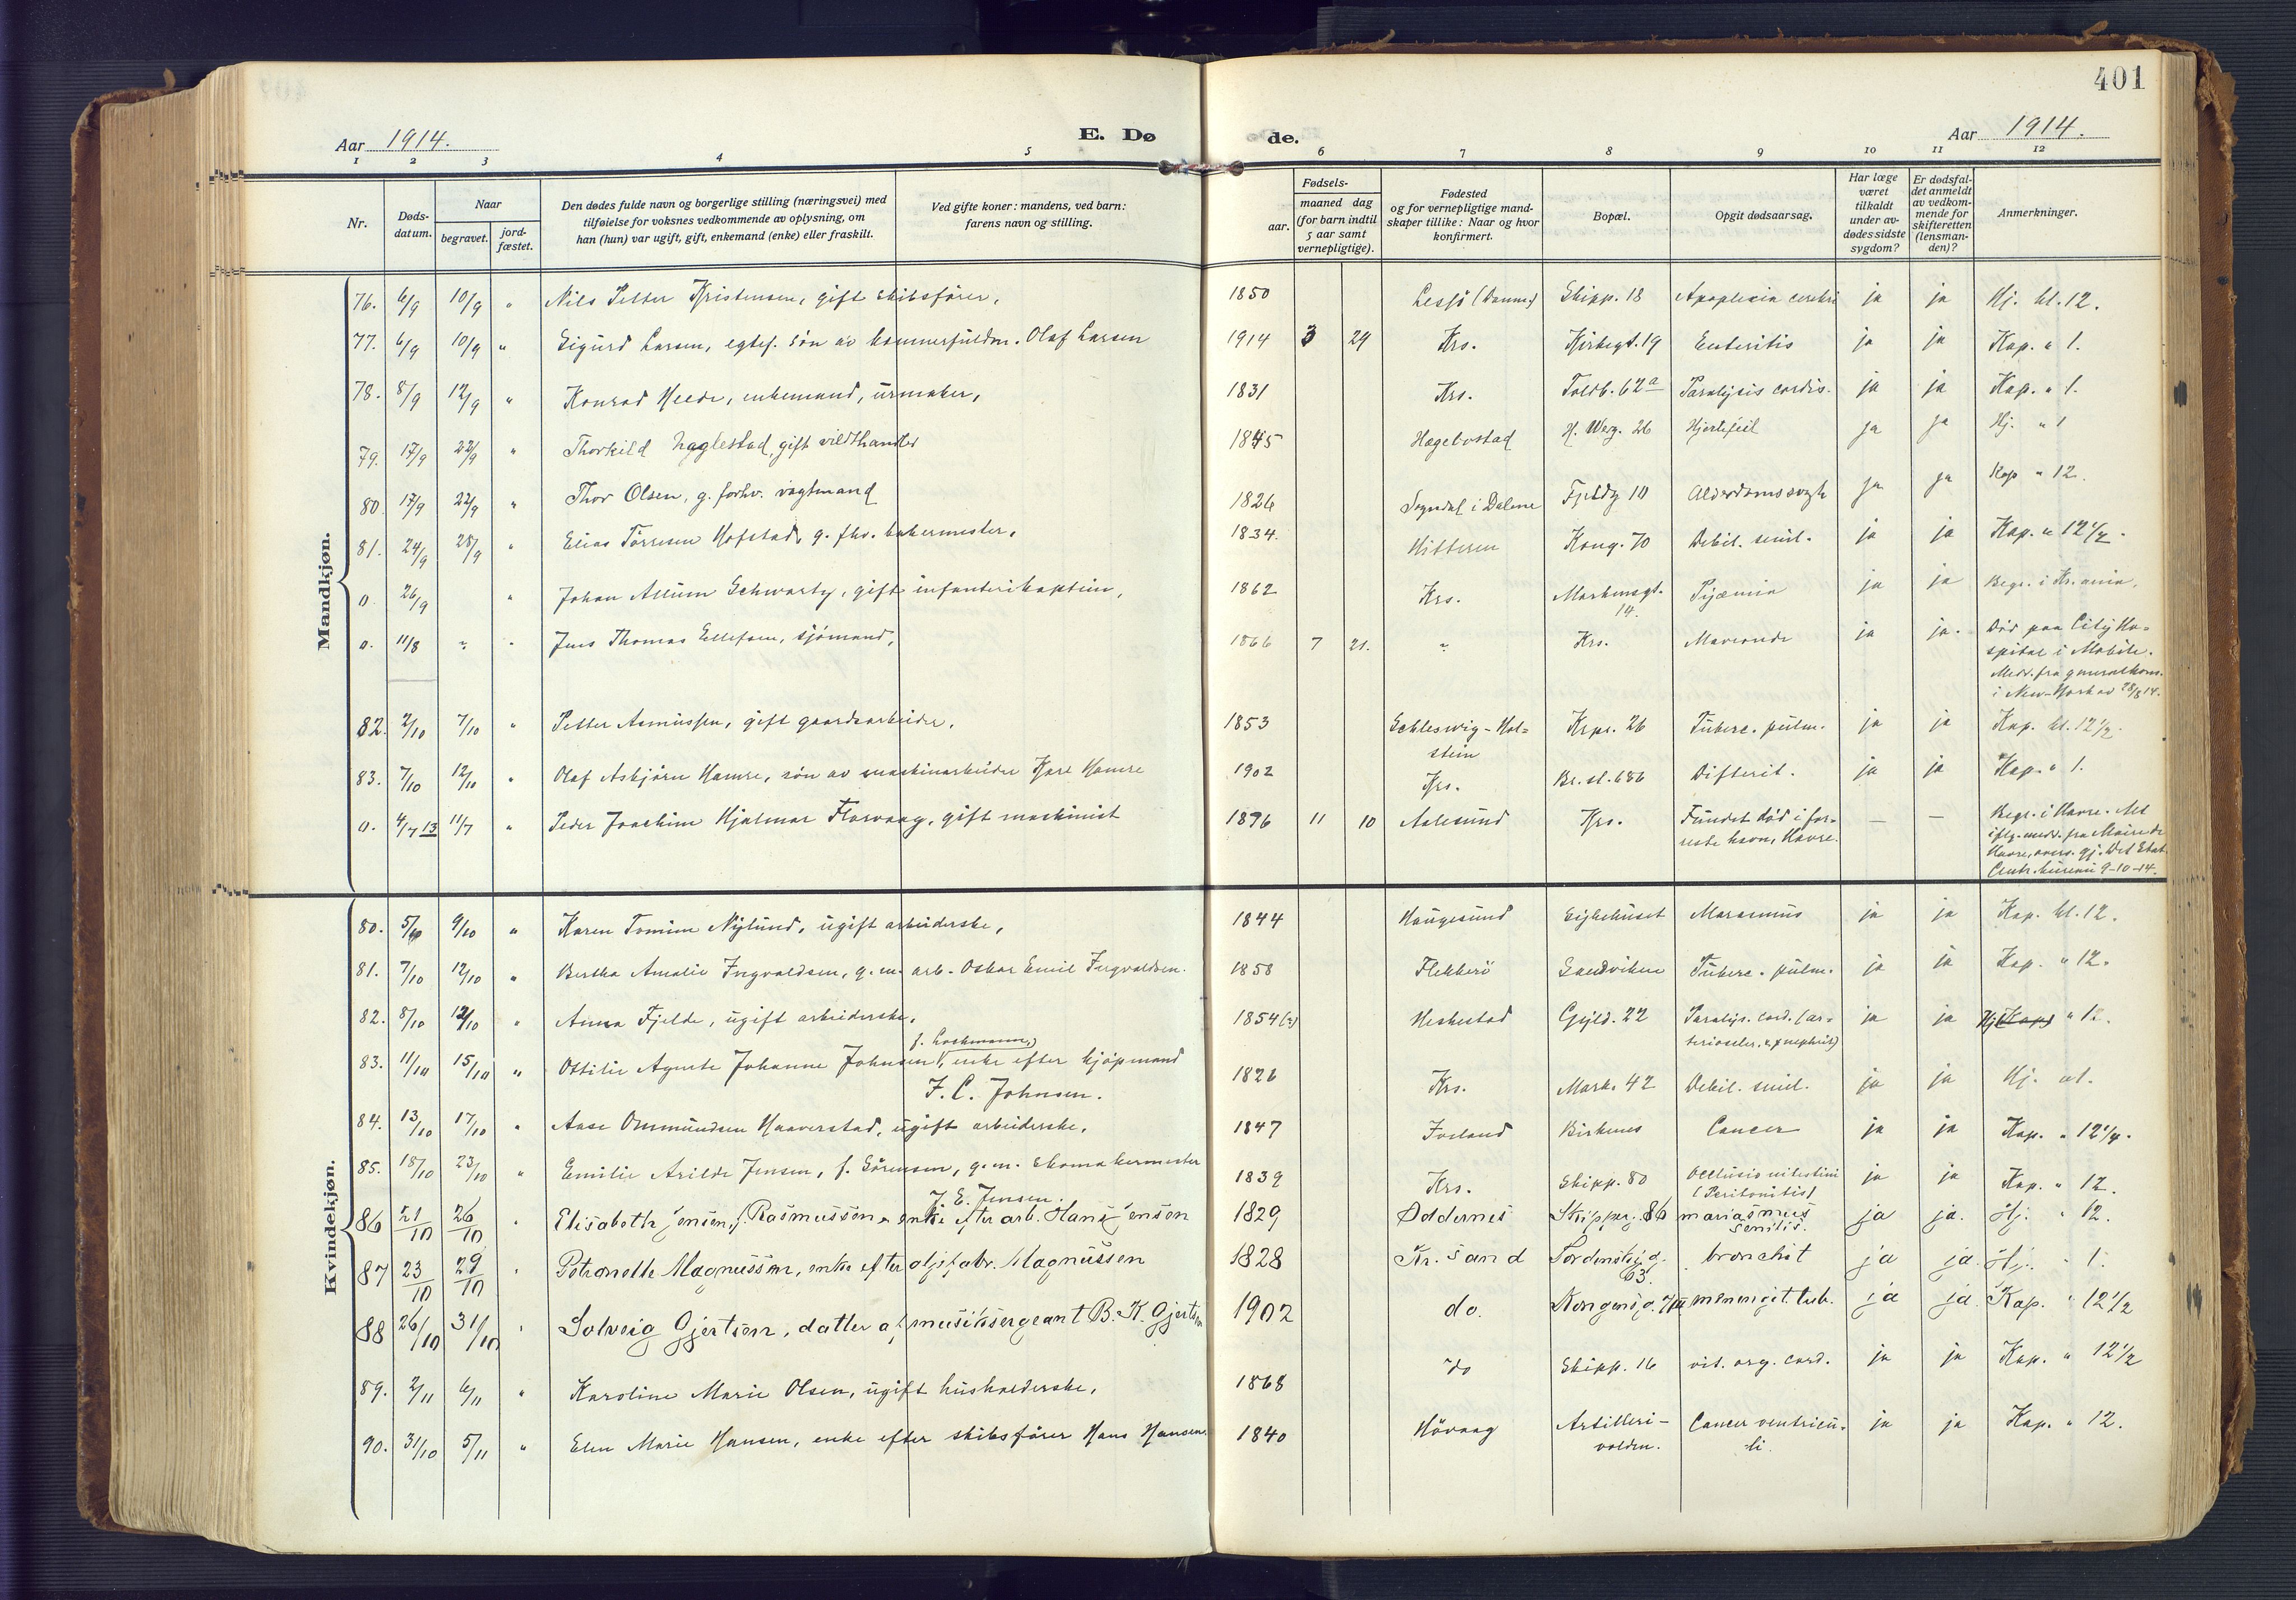 401
Aar 1914. E. Dø de. Aar 1914.
1 2 3 4 5 6 7 8 9 10 11 12
Nr. Døds-datum. Naar begravet. jord-fæstet. Den dødes fulde navn og borgerlige stilling (næringsvei) med tilføielse for voksnes vedkommende av oplysning, om han (hun) var ugift, gift, enkemand (enke) eller fraskilt. Ved gifte koner: mandens, ved barn: farens navn og stilling. Fødsels- aar. maaned dag (for barn indtil 5 aar samt vernepligtige). Fødested og for vernepligtige mand-skaper tillike: Naar og hvor konfirmert. Bopæl. Opgit dødsaarsag. Har læge været tilkaldt under av-dødes sidste sygdom? Er dødsfal-det anmeldt av vedkom-mende for skifteretten (lensman-den)? Anmerkninger.
Mandkjøn.
76. 6/9 10/9 " Nils Petter Kristensen, gift skibsfører, 1850 (Danm.) Skipp. 18 Apoplexia cerebri ja ja Hj. kl. 12.
77. 6/9 10/9 " Sigurd Larsen, egtef. søn av Olaf Larsen 1914 3 29 Krs. Kirkegt. 19 Enteritis ja ja Kap. " 1.
78. 8/9 12/9 " Konrad Heede, enkemand, urmaker, 1831 Krs. Toldb. 62a Paralysis cordis. ja ja Kap. " 1.
79. 17/9 22/9 " Thorkild Haglestad, gift vildthandler 1845 Hægebostad H. Werg. 26 Hjertefeil ja ja Hj. " 1
80. 17/9 22/9 " Thor Olsen, g. forhv. vagtmand 1826 Sogndal i Dalene Fjeldg 10 Alderdomssvagh ja ja Kap " 12.
81. 24/9 28/9 " Elias Tørresen Hofstad, g. fhv. bakermester, 1834. Hitteren Kong. 70 Debil. senil. ja ja Kap. " 12 1/2.
0. 26/9 " Johan Allum Schwartz, gift infanterikaptein, 1862 Krs. Markensgt. 14. Pyæmia ja ja Begr. i Kr.ania.
0. 11/8 " " Jens Thomas Ellefsen, sjømand, 1866 7 21. " Krs. ja ja. Død paa City Ho=
spital i Mobile.
Medd. fra generalkons.
i New-York av 28/8 14.
82. 2/10 7/10 " Petter Asmussen, gift gaardsarbeider, 1853 Schleswig-Hol=
stein Krpr. 26 Tuberc. pulm. ja ja Kap. kl. 12 1/2.
83. 7/10 12/10 " Olaf Asbjørn Hamre, søn av maskinarbeider Hamre 1902 Krs. Br. st. 686 Difterit. ja ja Kap. " 1.
0. 4/7 13 11/7 " Peder Joachim Hjalmar Florvaag, gift maskinist 1876 11 10 Aalesund Krs. Fundet død i for-
reste havn, Havre. — — Begr. i Havre. Alt
iflg. medd. fra Maire de
Havre, overs. gj. Det Stat.
Centr. bureau 9-10-14.
Kvindekjøn.
80. 5/10 9/10 " Karen Tomine Nylund, ugift arbeiderske, 1844 Haugesund Sykehuset Marasmus ja ja Kap. kl. 12.
81. 7/10 12/10 " Bertha Amalie Ingvaldsen, g. m. arb. Oskar Emil Ingvaldsen. 1858 Flekkerø Sandviken Tuberc. pulm. ja ja Kap. " 12.
82. 8/10 12/10 " Anna Fjelde, ugift arbeiderske, 1854(?) Heskestad Gyld. 22 Paralys. cord. (ar=
terioscler. & nephrit) ja ja Hj. Kap " 12.
f. Lochmann,
83. 11/10 15/10 " Ottilie Agnete Johanne Johnsen, enke efter kjøpmand
F. C. Johnsen. 1826 Krs. Mark. 42 Debil. senil. ja ja Hj. " 1.
84. 13/10 17/10 " Aase Osmundsen Haaverstad, ugift arbeiderske, 1847 Iveland Birkenes Cancer ja ja Kap. " 12 1/4.
85. 18/10 23/10 " Emilie Arilde Jensen, f. Sørensen, g. m. skomakermester
J. E. Jensen. 1839 Krs. Skipp. 80 Occlusio intestini
(Peritonitis) ja ja Kap. " 12.
86 21/10 26/10 " Elisabeth Jensen, f. Rasmussen, enke efter arb. Hans Jensen 1829 Oddernes Skipperg. 86 mariasmus
senilis. ja ja. Hj. " 12.
87 23/10 29/10 " Petronelle Magnussen, enke efter oljefabr. Magnussen 1828 Kr.sand Tordenskj.g.
63. bronchit ja ja. Hj. " 1.
88 26/10 31/10 " Solveig Gjertsen, datter af musiksergeant B. K. Gjertsen 1902 do. Kongensg. meningit. tub. ja ja Kap. " 12 1/2
89. 2/11 6/11 " Karoline Marie Olsen, ugift husholderske, 1868 do Skipp. 16 vit. org. cord. ja ja Kap. " 12 1/2
90. 31/10 5/11 " Elen Marie Hansen, enke efter skibsfører Hans Hansen. 1840 Høvaag Artilleri-
volden. Cancer ventricu-
li. ja ja Kap. " 12.